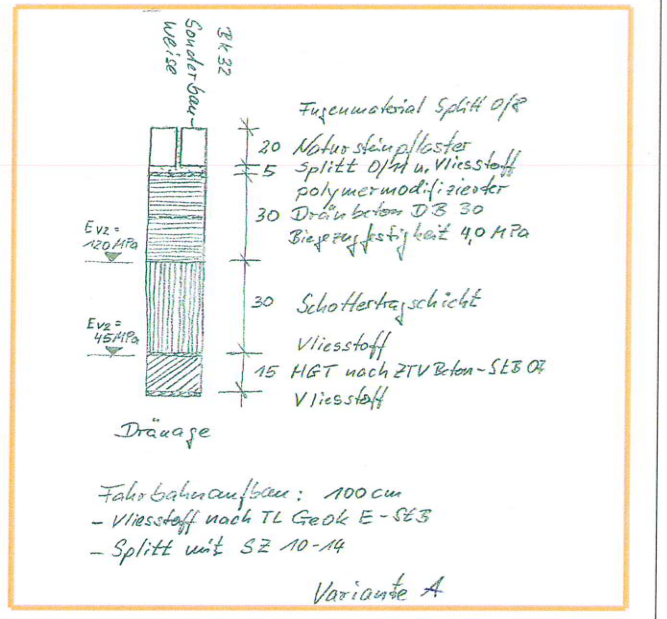 Bk 32
Sonderbau-
weise
Fugenmaterial Splitt 0/8
20 Natursteinpflaster
5 Splitt 0/11 u. Vliesstoff
polymermodifizierter
30 Dränbeton DB 30
Biegezugfestigkeit 4,0 MPa
Ev2 =
120 MPa
30 Schottertragschicht
Ev2 =
45 MPa
Vliesstoff
15 HGT nach ZTV Beton-StB 07
Vliesstoff
Dränage
Fahrbahnaufbau: 100 cm
- Vliesstoff nach TL Geok E-StB
- Splitt mit SZ 10-14
Variante A